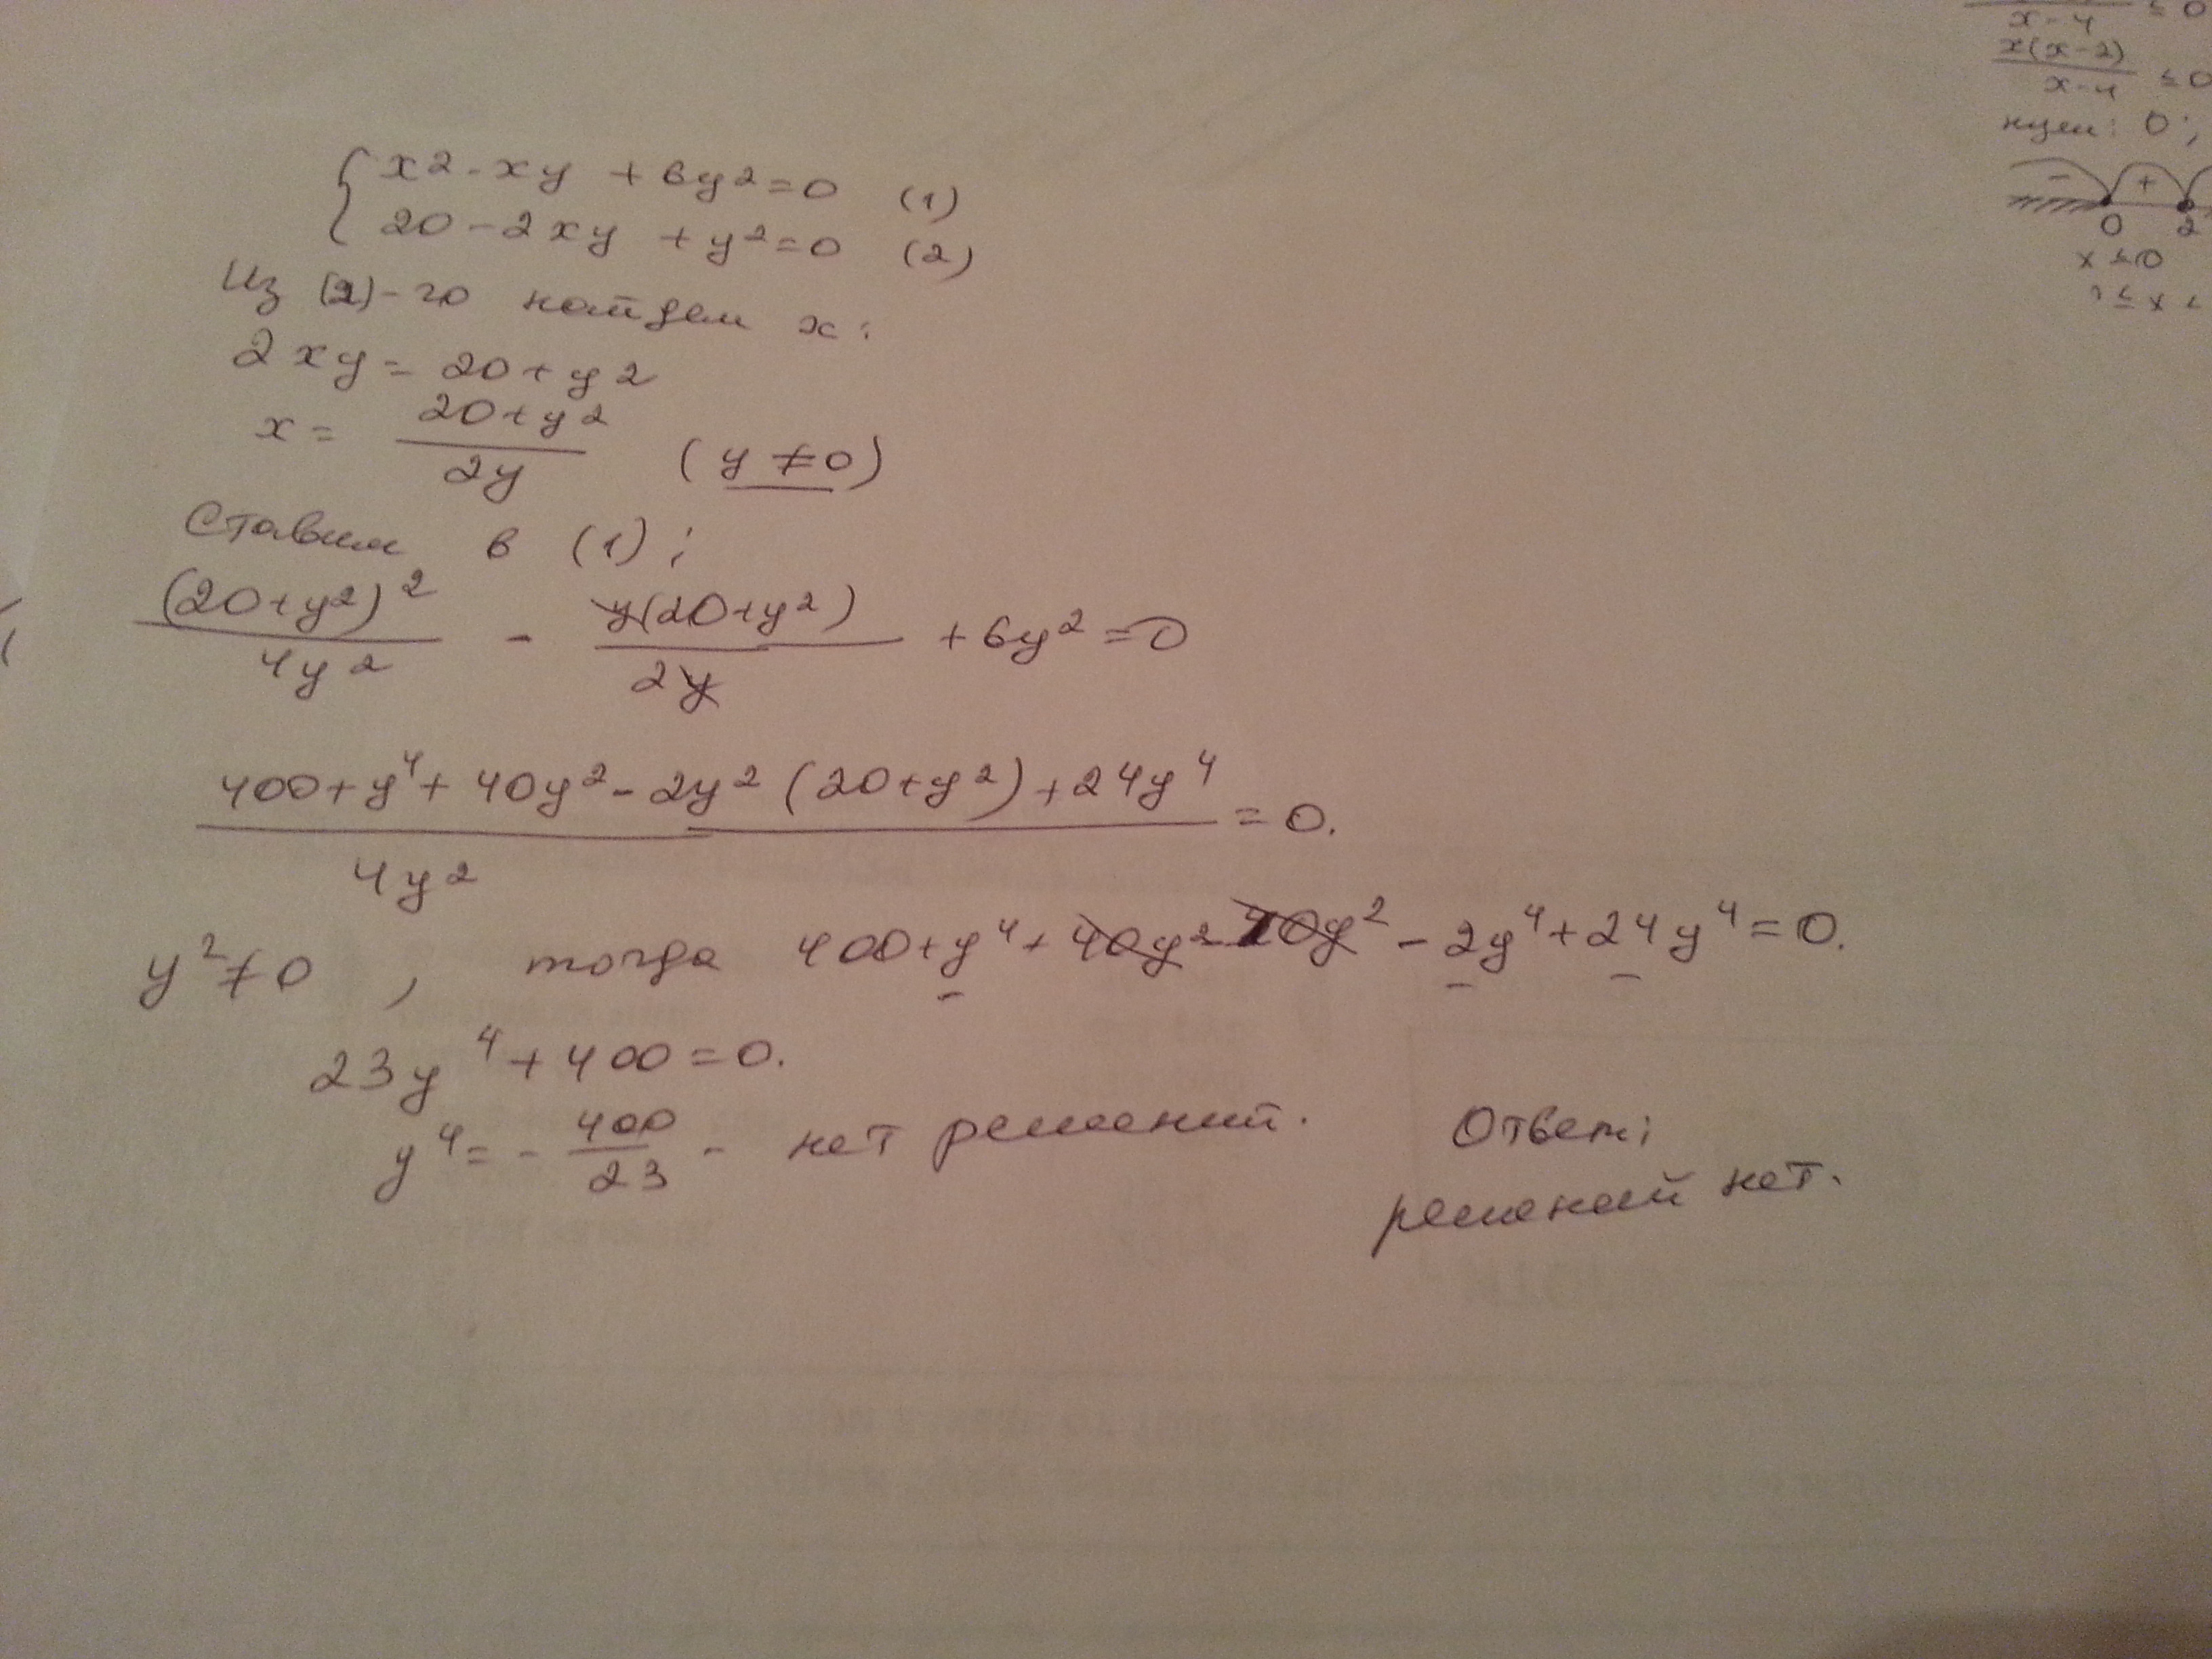 x² - xy + 6y² = 0 (1)
20 - 2xy + y² = 0 (2)
Из (2)-го найдем x:
2xy = 20 + y²
x = (20 + y²)/(2y) (y ≠ 0)
Ставим в (1):
(20+y²)²/(4y²) - y(20+y²)/(2y) + 6y² = 0
(400 + y⁴ + 40y² - 2y²(20+y²) + 24y⁴)/(4y²) = 0.
y² ≠ 0, тогда 400 + y⁴ + 40y² - 40y² - 2y⁴ + 24y⁴ = 0.
23y⁴ + 400 = 0.
y⁴ = - 400/23 - нет решений.
Ответ:
решений нет.
x-4 ≤ 0
x(x-2)/(x-4) ≤ 0
нули: 0;
- +
0 2
x ≤ 0